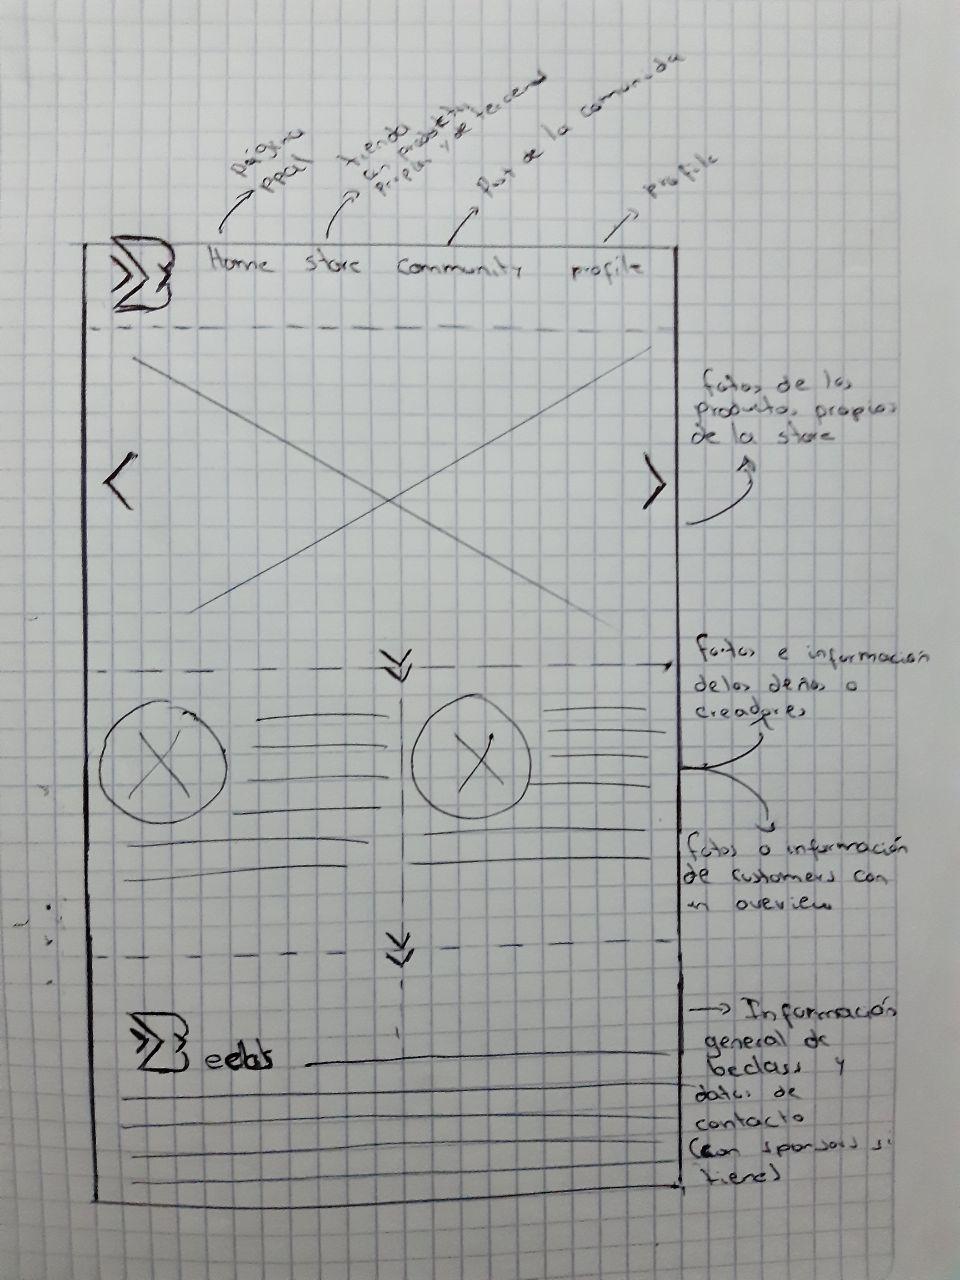 página
ppal
tienda
con productos
propios y de terceros
Post de la comunida
profile
Home store community profile
fotos de los
productos propios
de la store
fotos e información
de los deños o
creadores
fotos o información
de customers con
un overview
eclas
Información
general de
beclass y
datos de
contacto
(con sponsors si
tiene)